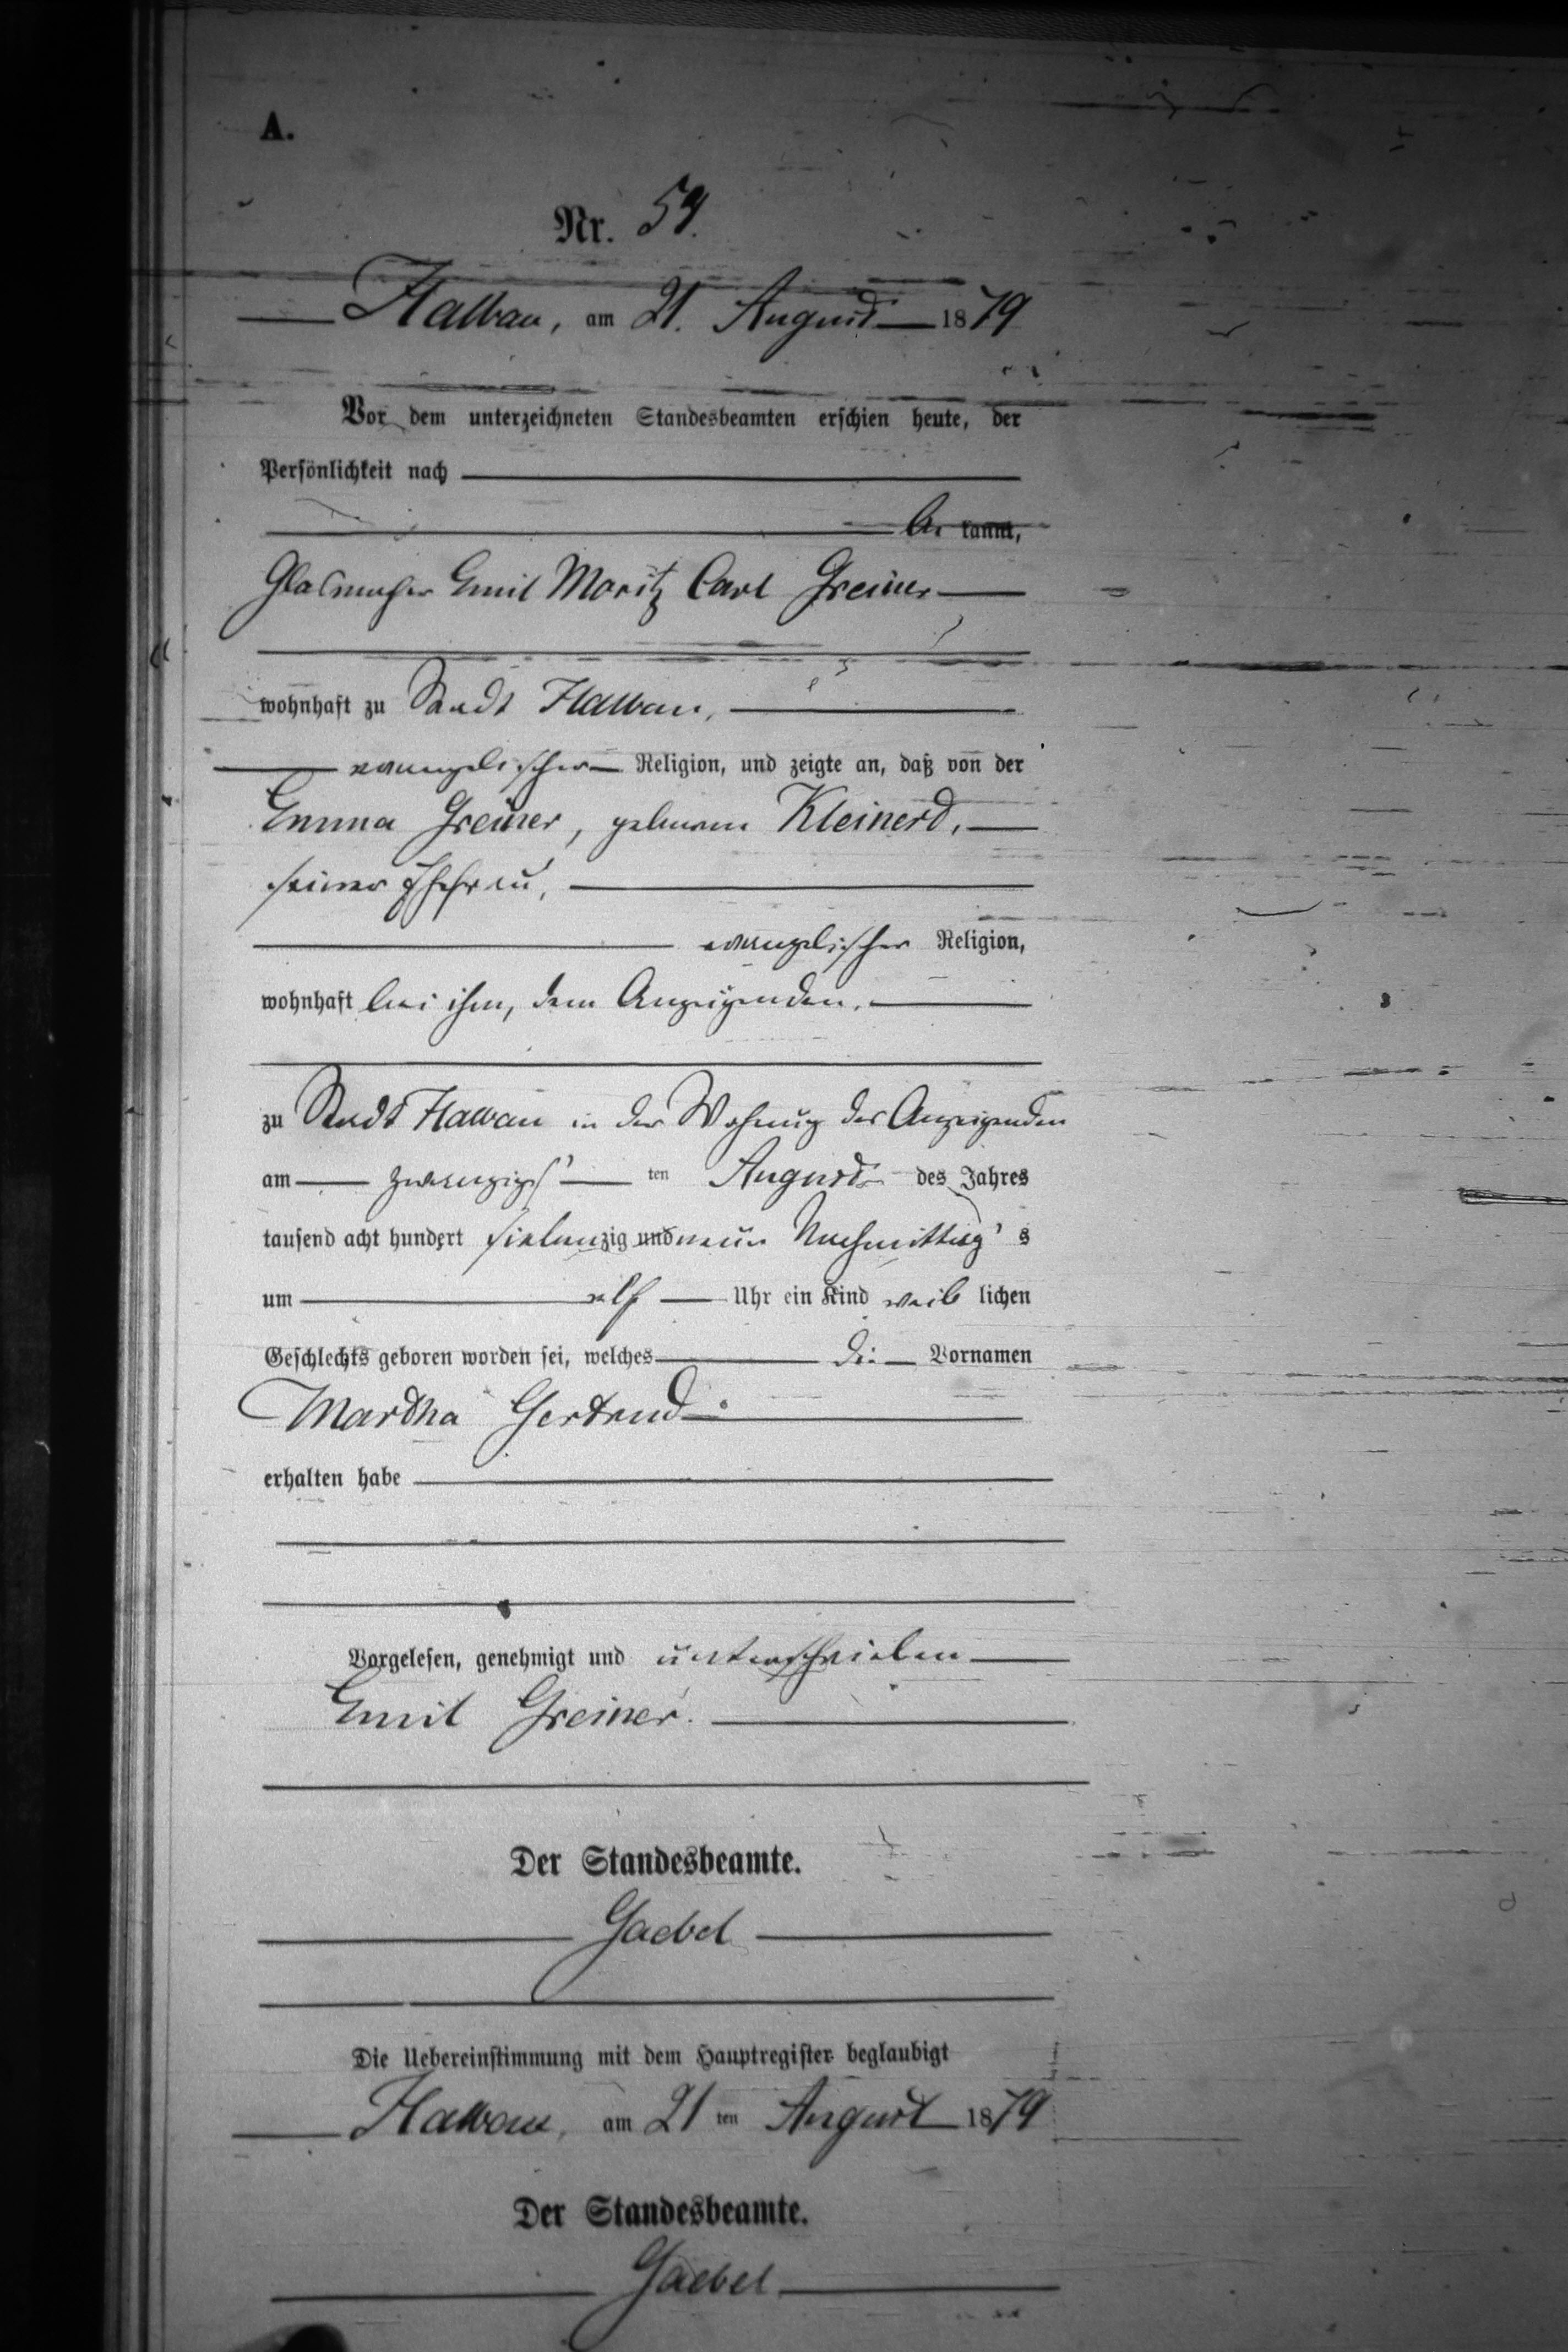 A.
Nr. 54.
Halbau, am 21. August 1879
Vor dem unterzeichneten Standesbeamten erschien heute, der
Persönlichkeit nach
be kannt,
Glasmacher Emil Moritz Carl Greiner
wohnhaft zu Stadt Halbau,
evangelischer Religion, und zeigte an, daß von der
Emma Greiner, geborenen Kleinert,
seiner Ehefrau,
evangelischer Religion,
wohnhaft bei ihm, dem Anzeigenden,
zu Stadt Halbau in der Wohnung des Anzeigenden
am zwanzigs ten August des Jahres
tausend acht hundert siebenzig und neun Nachmittag s
um elf Uhr ein Kind weib lichen
Geschlechts geboren worden sei, welches die Vornamen
Martha Gertrud
erhalten habe
Vorgelesen, genehmigt und unterschrieben
Emil Greiner.
Der Standesbeamte.
Gaebel
Die Uebereinstimmung mit dem Hauptregister beglaubigt
Halbau, am 21 ten August 1879
Der Standesbeamte.
Gaebel